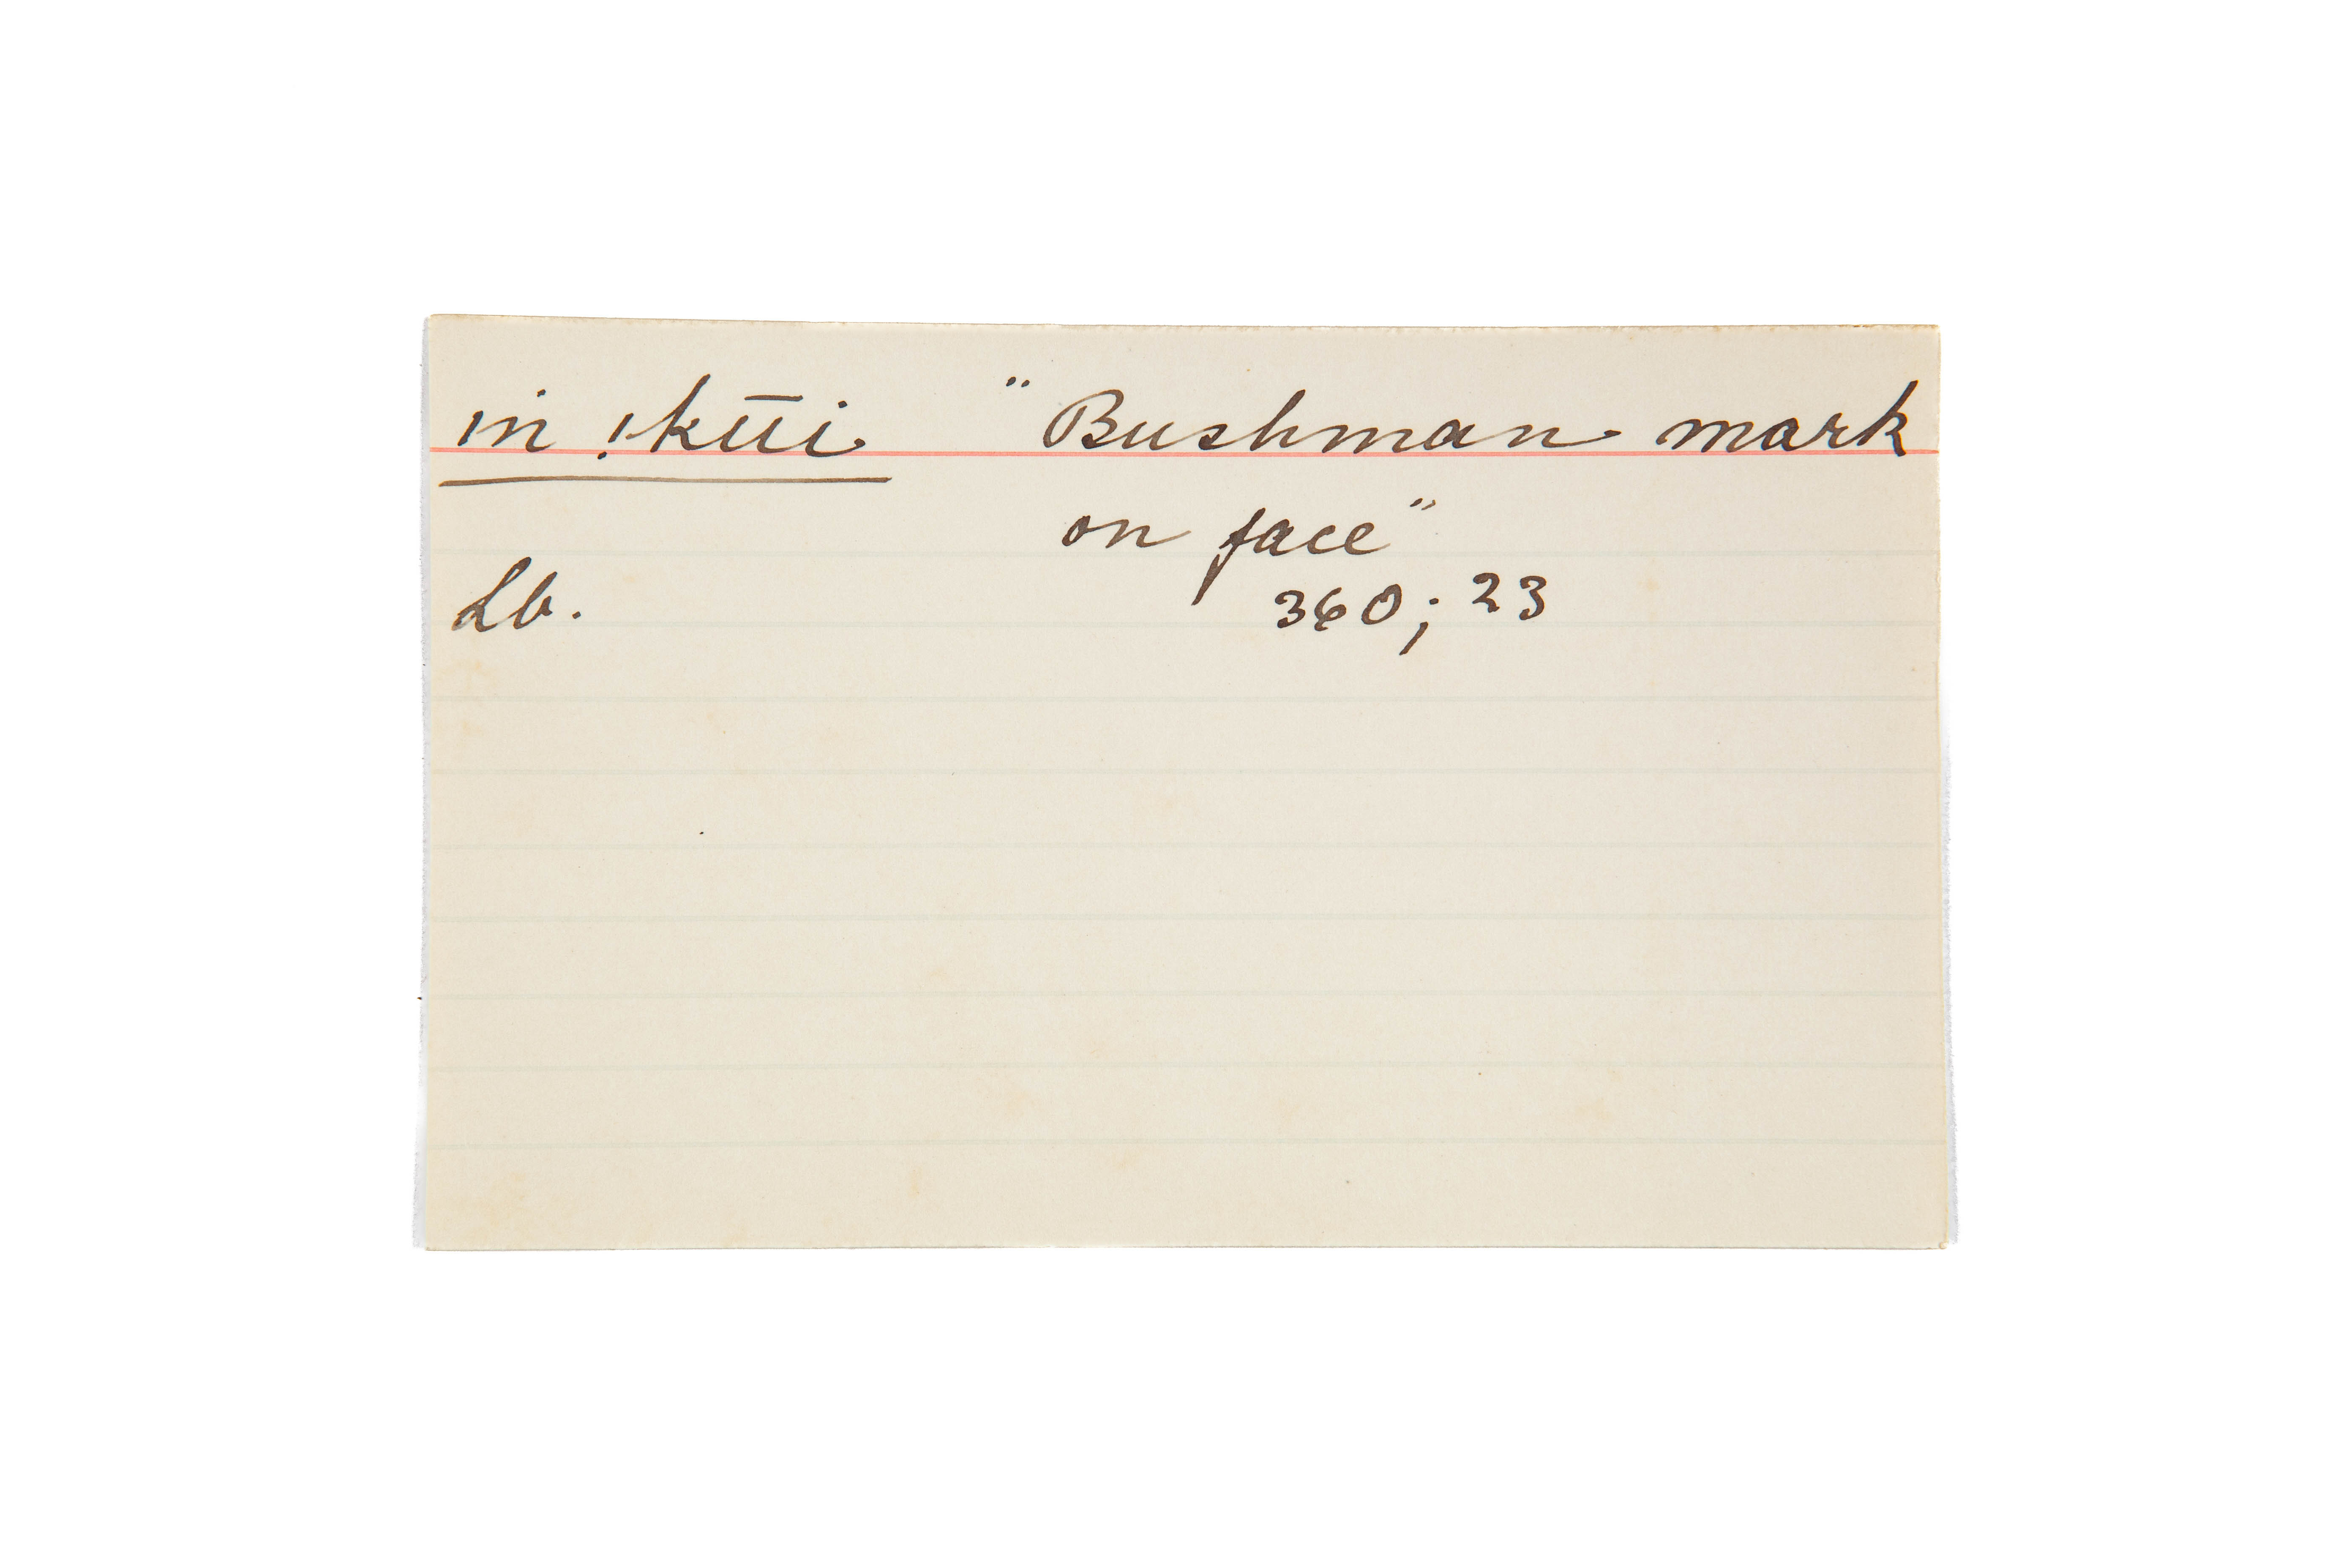 in !kūi "Bushman mark
on face"
Lb. 360; 23